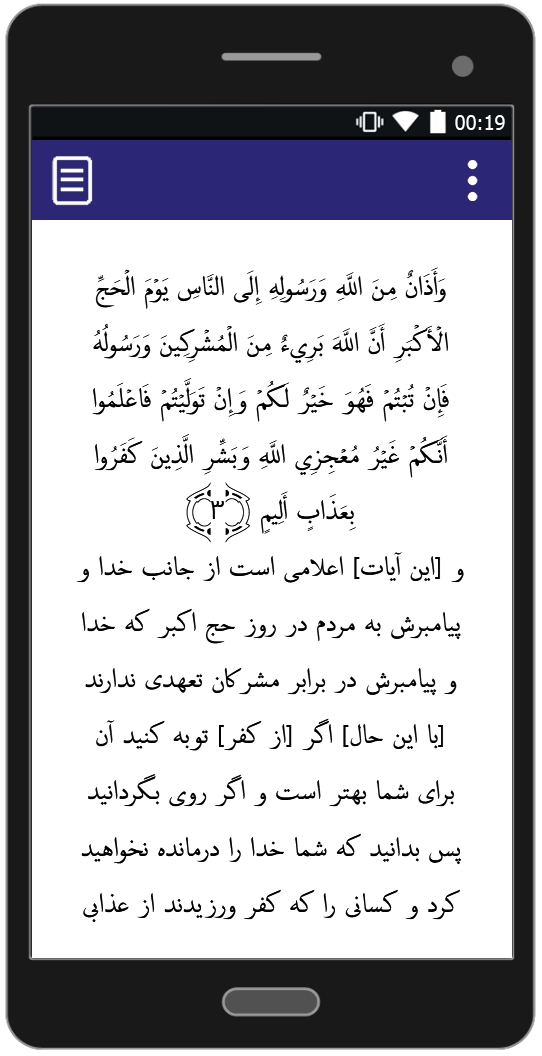 00:19
وَأَذَانٌ مِنَ اللَّهِ وَرَسُولِهِ إِلَى النَّاسِ يَوْمَ الْحَجِّ
الْأَكْبَرِ أَنَّ اللَّهَ بَرِيءٌ مِنَ الْمُشْرِكِينَ وَرَسُولُهُ
فَإِنْ تُبْتُمْ فَهُوَ خَيْرٌ لَكُمْ وَإِنْ تَوَلَّيْتُمْ فَاعْلَمُوا
أَنَّكُمْ غَيْرُ مُعْجِزِي اللَّهِ وَبَشِّرِ الَّذِينَ كَفَرُوا
بِعَذَابٍ أَلِيمٍ ﴿٣﴾
و [این آیات] اعلامی است از جانب خدا و
پیامبرش به مردم در روز حج اکبر که خدا
و پیامبرش در برابر مشرکان تعهدی ندارند
[با این حال] اگر [از کفر] توبه کنید آن
برای شما بهتر است و اگر روی بگردانید
پس بدانید که شما خدا را درمانده نخواهید
کرد و کسانی را که کفر ورزیدند از عذابی